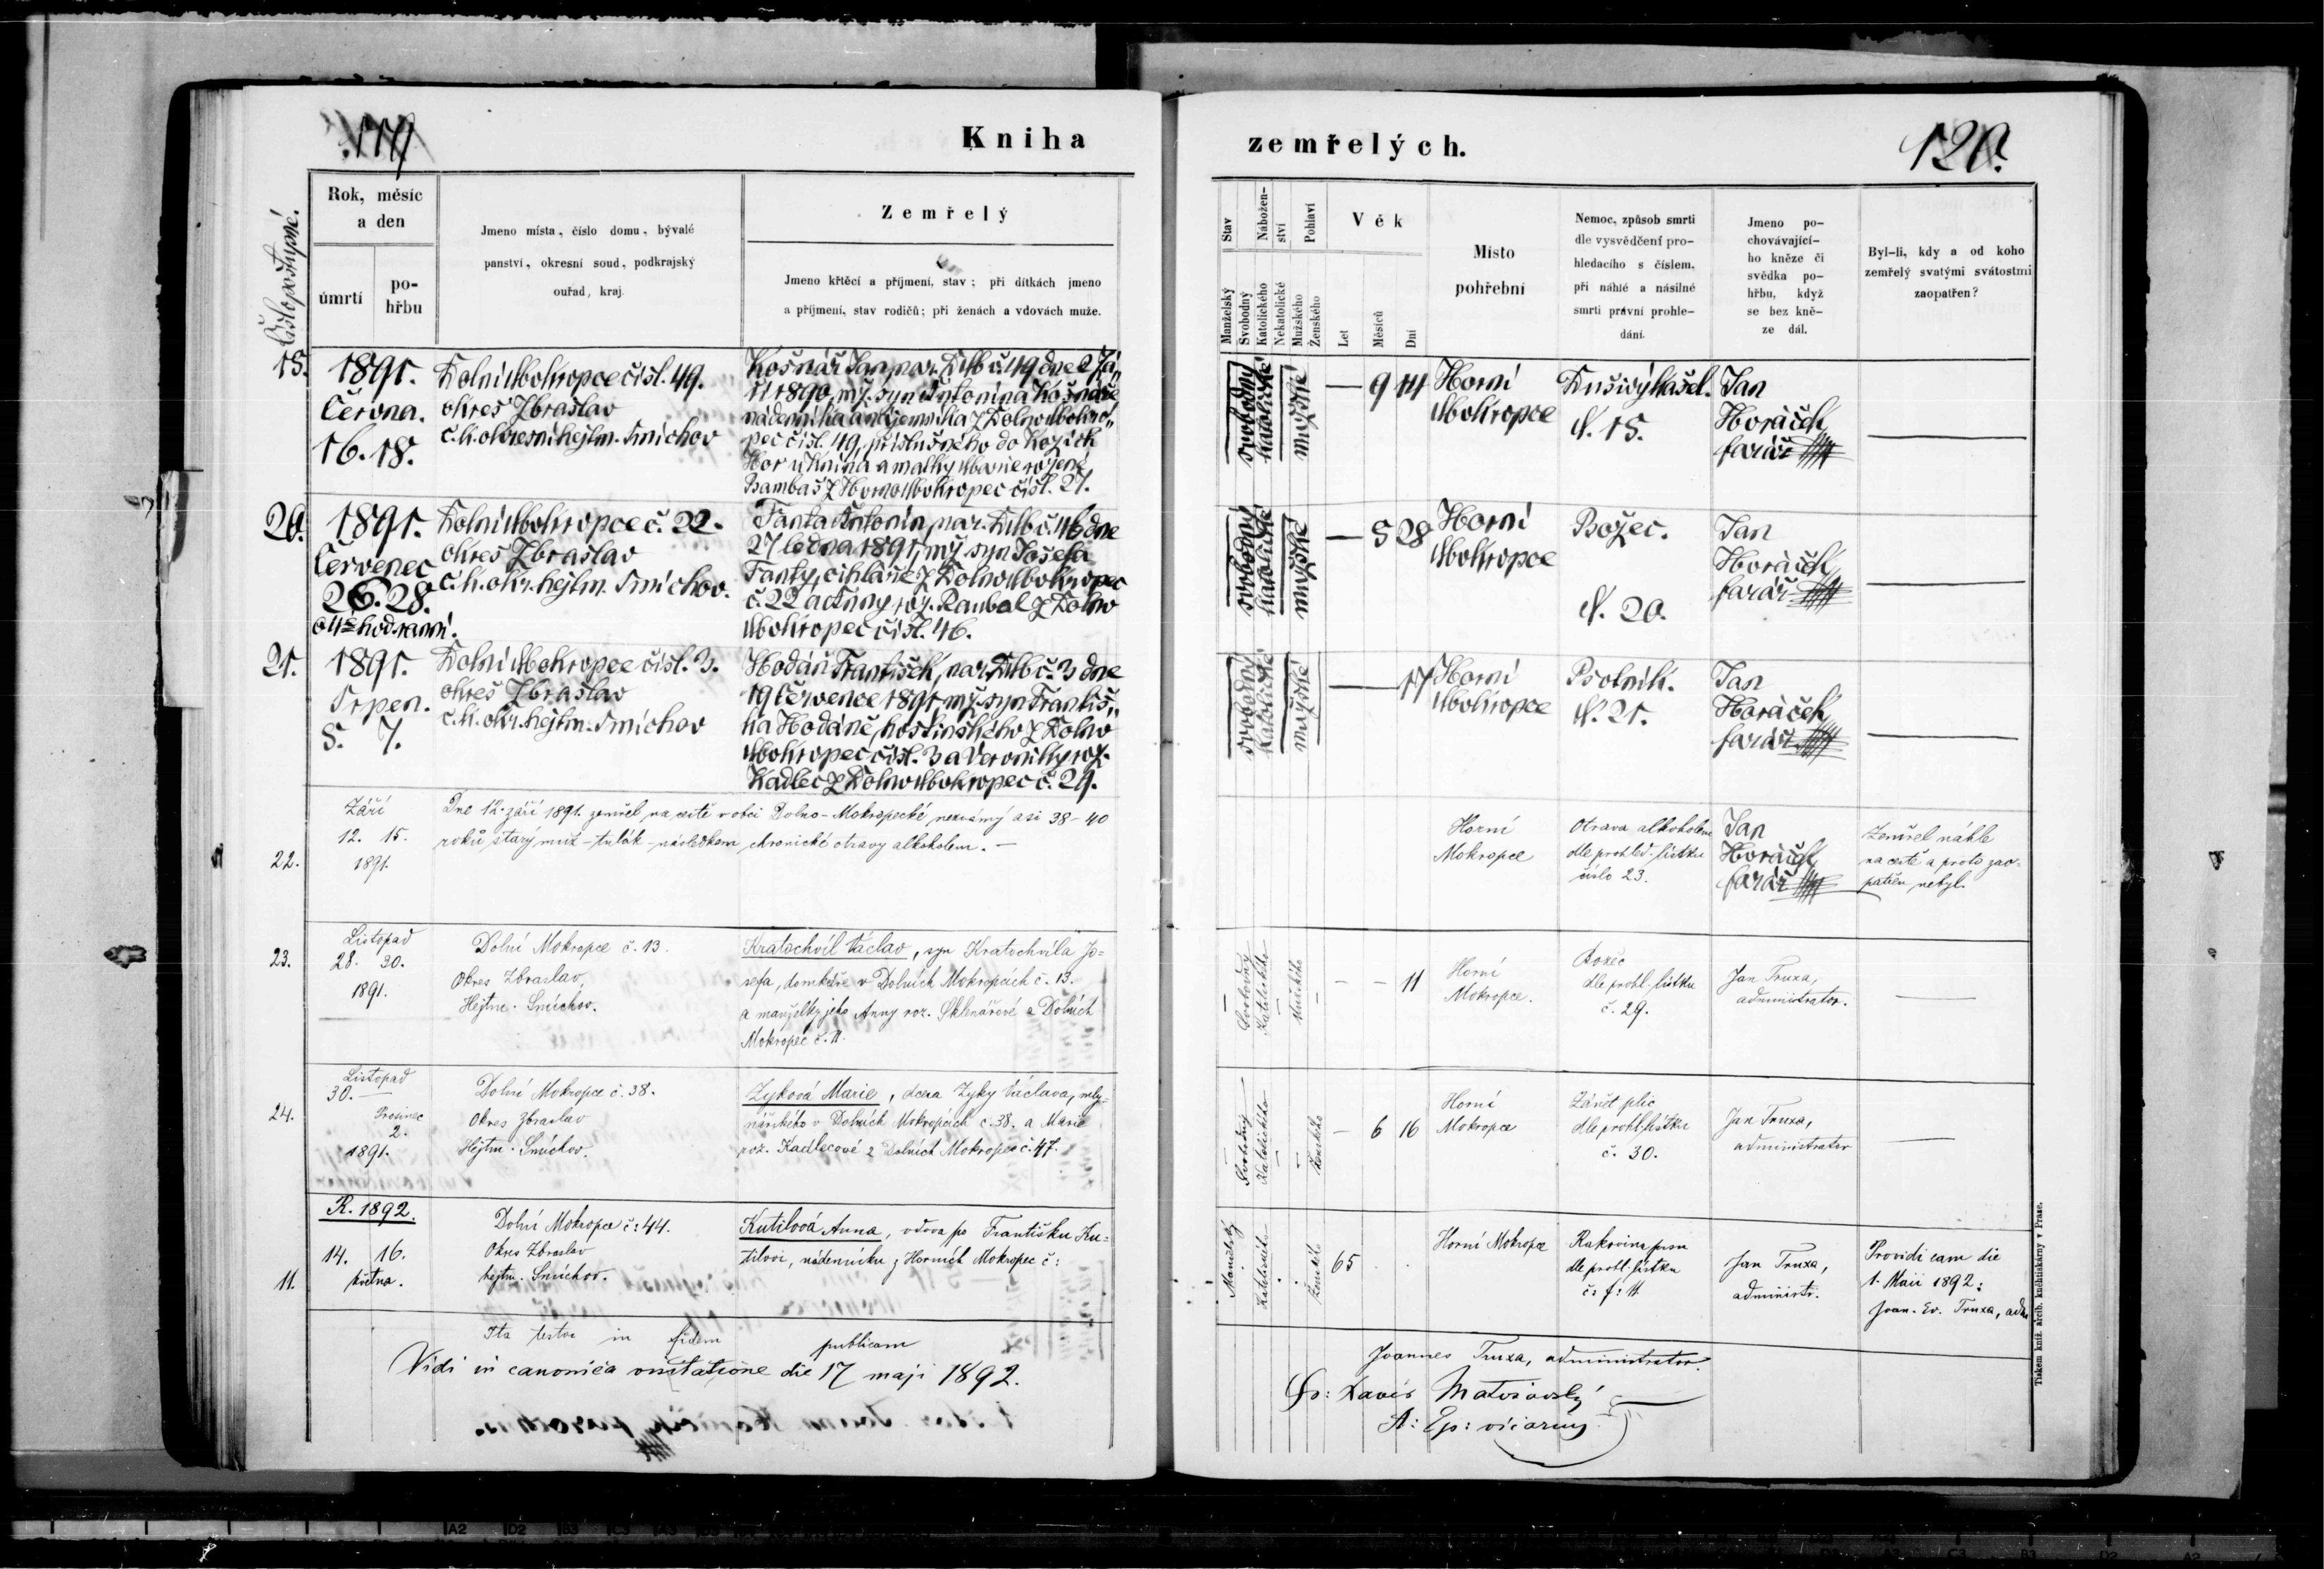 119
Kniha
Číslo postupné.
Rok, měsíc
a den
úmrtí
po-
hřbu
Jmeno místa, číslo domu, bývalé
panství, okresní soud, podkrajský
ouřad, kraj.
Zemřelý
Jmeno křtěcí a příjmení, stav; při dítkách jmeno
a příjmení, stav rodičů; při ženách a vdovách muže.
1891.
Června.
16. 18.
Dolní Mokropce čísl. 49.
okres Zbraslav
c. k. okresní hejtm. Smíchov
Košnář Jan, nar. DMb č. 49 dne 2 Zá-
ří 1890, mž. syn Antonína Košnáře
nádenníka a nájemníka z Dolno Mokro-
pec čísl. 49, příslušného do
Hor u Knína a matky Marie rozené
Bambas z Horno Mokropec čísl. 27.
20.
1891.
Červenec
26. 28.
o 4té hod. ranní.
Dolní Mokropce č. 22.
okres Zbraslav
c. k. okr. hejtm. Smíchov.
Fanta Antonín, nar. DMb č. 46 dne
27 ledna 1891, mž. syn Josefa
Fanty, cihláře z Dolno Mokropec
č. 22 a Anny roz. Raubal z Dolno
Mokropec čísl. 46.
21.
1891.
Srpen.
5. 7.
Dolní Mokropce čísl. 3.
okres Zbraslav
c. k. okr. hejtm. Smíchov
Hodáň František, nar. DMb č. 3 dne
19 července 1891, mž. syn Františ-
ka Hodáně, hostinského z Dolno
Mokropec čísl. 3 a Veroniky roz.
Kadlec z Dolno Mokropec č. 29.
22.
Září
12. 15.
1891.
Dne 12. září 1891. zemřel na cestě v obci Dolno-Mokropecké neznámý asi 38-40
roků starý muž - tulák - následkem chronické otravy alkoholem. —
23.
Listopad
28. 30.
1891.
Dolní Mokropce č. 13.
Okres Zbraslav,
Hejtm. Smíchov.
Kratochvíl Václav, syn Kratochvíla Jo=
sefa, domkáře v Dolních Mokropcích č. 13.
a manželky jeho Anny roz. Sklenářové z Dolních
Mokropec č. 11.
24.
Listopad
30. —
Prosinec
2.
1891.
Dolní Mokropce č. 38.
Okres Zbraslav
Hejtm. Smíchov.
Zyková Marie, dcera Zyky Václava, mly=
nářského v Dolních Mokropcích č. 38. a Marie
roz. Kadlecové z Dolních Mokropec č. 47.
R. 1892.
11.
14. 16.
května.
Dolní Mokropce č: 44.
Okres Zbraslav
hejtm. Smíchov.
Kutilová Anna, vdova po Františku Ku=
tilovi, nádenníku z Horních Mokropec č:
Ita testor in fidem publicam
Vidi in canonica visitatione die 17 maji 1892.
zemřelých.
120.
Stav
Manželský
Svobodný
Nábožen-
ství
Katolického
Nekatolické
Pohlaví
Mužského
Ženského
Věk
Let
Měsíců
Dní
Místo
pohřební
Nemoc, způsob smrti
dle vysvědčení pro-
hledacího s číslem,
při náhlé a násilné
smrti právní prohle-
dání.
Jmeno po-
chovávající-
ho kněze či
svědka po-
hřbu, když
se bez kně-
ze dál.
Byl-li, kdy a od koho
zemřelý svatými svátostmi
zaopatřen?
svobodný
katolické
mužské
— 9 14
Horní
Mokropce
Dusivý kašel.
Jan
Horáček
farář
svobodný
katolické
mužské
— 5 28
Horní
Mokropce
Božec.
N. 20.
Jan
Horáček
farář
svobodný
katolické
mužské
— 17
Horní
Mokropce
Psotník.
N. 21.
Jan
Horáček
farář
Horní
Mokropce
Otrava alkoholem
dle prohled. lístku
číslo 23.
Jan
Horáček
farář
Zemřel náhle
na cestě a proto zao-
patřen nebyl.
Svobodný
Katolického
Mužského
— — 11
Horní
Mokropce.
Božec
dle prohl. lístku
č. 29.
Jan Truxa,
administrator.
Svobodný
Katolického
Ženského
— 6 16
Horní
Mokropce
Zánět plic
dle prohl. lístku
č. 30.
Jan Truxa,
administrator
Manželský
Katolického
Ženského
65
Horní Mokropce
Rakovina prsu
dle prohl. lístku
Jan Truxa,
administr.
Providi eam die
1. Maii 1892:
Joan. Ev. Truxa, adm
Joannes Truxa, administrator.
Fr: Xaver
A: Ep: vicarius
Tiskem kníž. arcib. knihtiskárny v Praze.